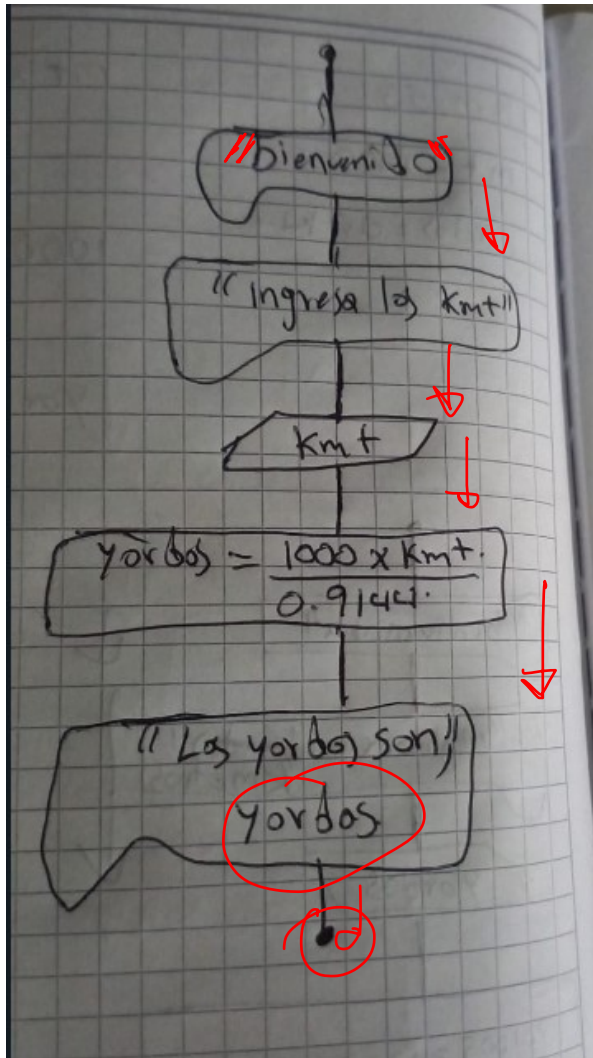 "Bienvenido"
"Ingresa los kmt"
kmt
yardas = 1000 x kmt.
0.9144.
"Los yardas son,"
yardas
d